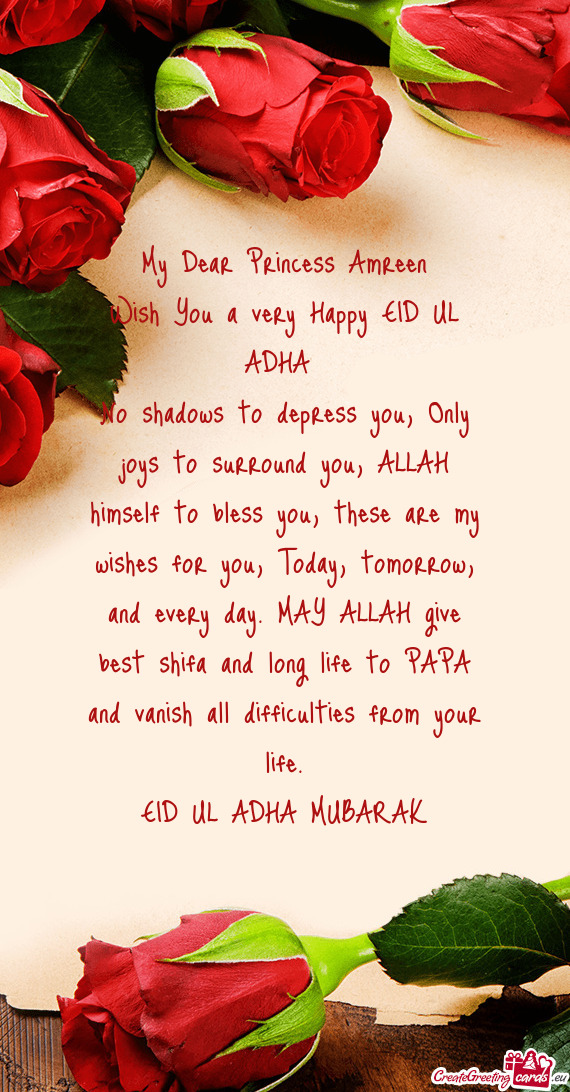 My Dear Princess Amreen
Wish You a very Happy EID UL
ADHA
No shadows to depress you, Only
joys to surround you, ALLAH
himself to bless you, these are my
wishes for you, Today, tomorrow,
and every day. MAY ALLAH give
best shifa and long life to PAPA
and vanish all difficulties from your
life.
EID UL ADHA MUBARAK
CreateGreeting cards.eu